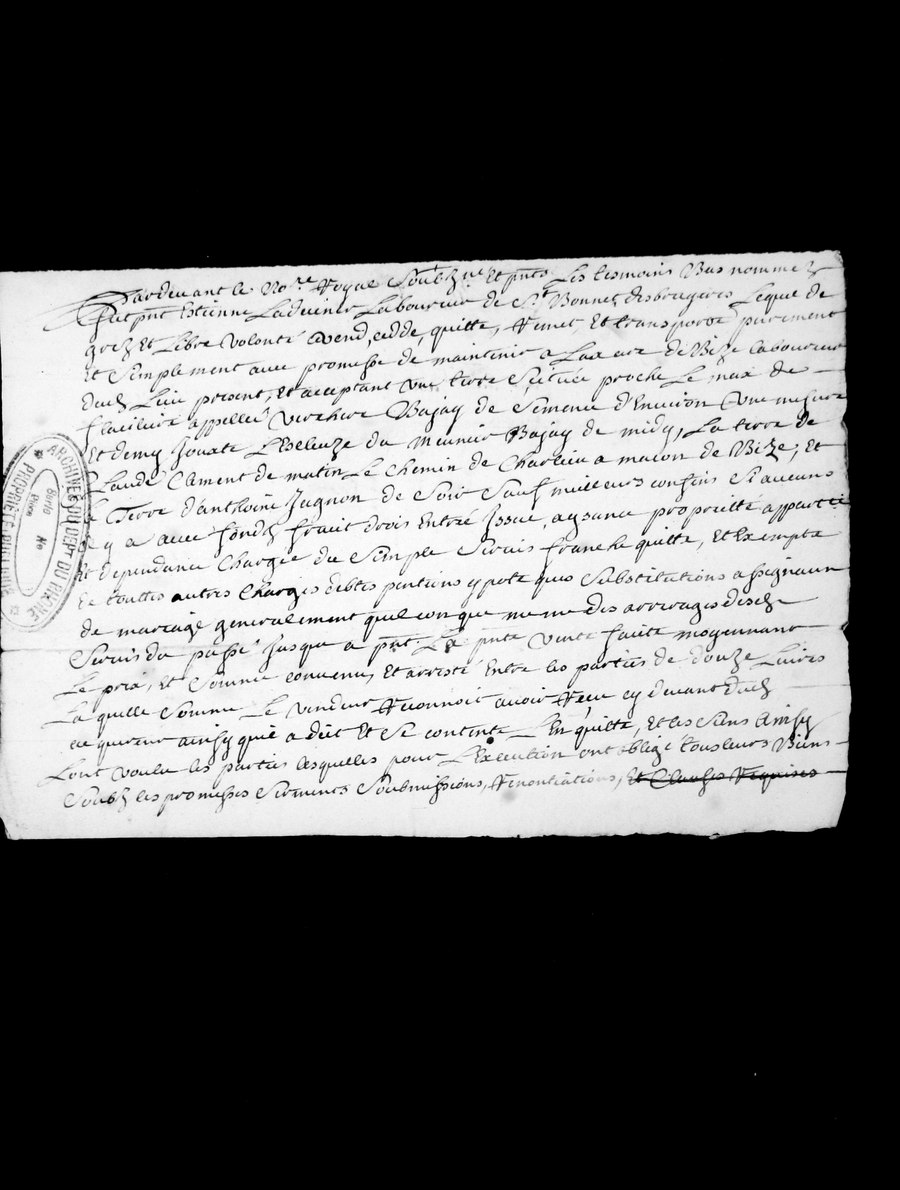 Pardevant le No.re Royal Soubzne Et pnts Les tesmoins Bas nommez
fut pnt Estienne Ladevier Laboureur de St Bonnet desbruyeres Lequel de
grez Et Libre volonté a vend, cedde, quitte, Remet, Et transporte purement
Et Simplement avec promesse de maintenir a Lazare de Bize laboureur
dud Lieu present, Et acceptant une terre Scituée proche Le max de
appellée Bajay de Semence d'Environ une mesure
Et demy Jouxte du meunier Bajay de midy, La terre de
Claude Clement de matin Le chemin de Charlieu a macon de Bize, Et
Terre d'anthoine Jugnon de Soir Sauf meilleurs confins Si aucuns
y a avec fondz fruit drois Entré Issue, aysance proprietté appartce
Et dependance Chargée du Simple Servis franche quitte, Et Exempte
de touttes autres Charges debtes pentions ypoteques Substitutions assignaux
de mariage generalement quelconque mesme des arrerages desd
Servis du passé Jusque a pnt. La pnte vente faitte moyennant
Le prix, Et Somme convenu, Et arresté Entre les parties de douze Livres
Laquelle Somme Le vendeur Reconnoit avoir Reçu cy devant dud
acquereur ainsy quil a dict Et Se contente L'En quitte, Et les Siens Ainsy
Lont voulu les parties lesquelles pour L'Execution ont obligé tous leurs Biens
Soubz les promesses Serments Soubmissions, Renontiations, Et Clauses Requises
ARCHIVES DU DEPT DU RHONE
PROPRIÉTÉ PUBLIQUE